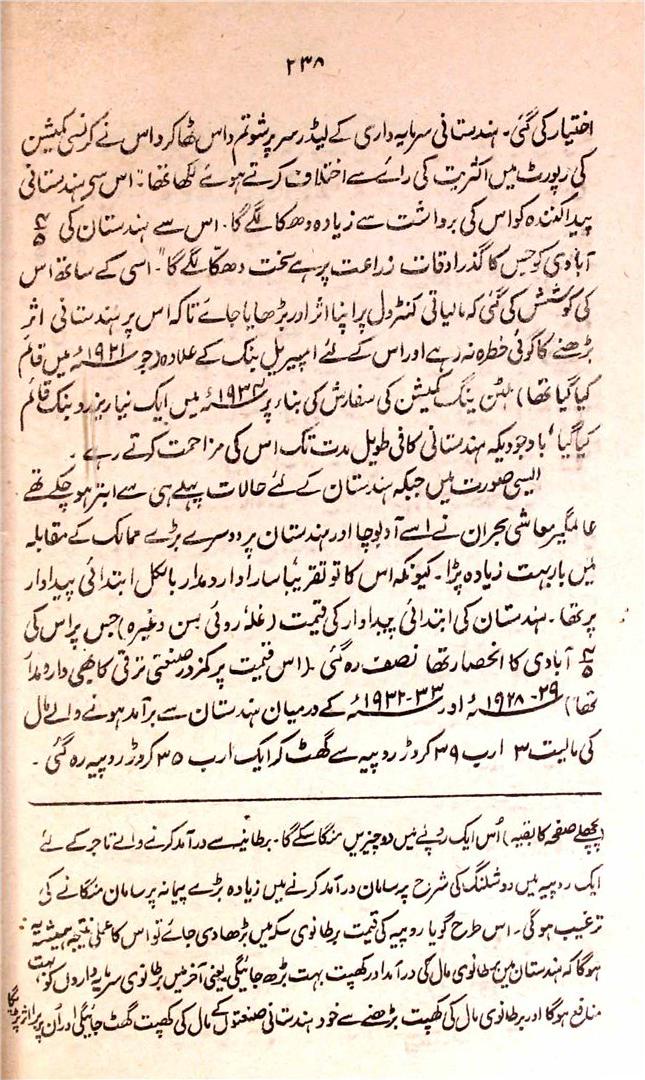 ۲۳۸
اختیار کی گئی۔ ہندستانی سرمایہ داری کے لیڈر سر پرشوتم داس ٹھاکر داس نے کرنسی کمیشن
کی رپورٹ میں اکثریت کی رائے سے اختلاف کرتے ہوئے لکھا تھا "اس سے ہندستانی
پیدا کنندہ کو اس کی برداشت سے زیادہ دھکا لگے گا۔ اس سے ہندستان کی ۴/۵
آبادی کو جس کا گذر اوقات زراعت پر ہے سخت دھکا لگے گا"۔ اسی کے ساتھ اس
کی کوشش کی گئی کہ مالیاتی کنٹرول پر اپنا اثر اور بڑھایا جائے تاکہ اس پر ہندستانی اثر
بڑھنے کا کوئی خطرہ نہ رہے اور اس کے لئے امپیریل بنک کے علاوہ (جو ۱۹۲۱ء میں قائم
کیا گیا تھا) ہلٹن ینگ کمیشن کی سفارش کی بناء پر ۱۹۳۴ء میں ایک نیا ریزرو بنک قائم
کیا گیا، باوجودیکہ ہندستانی کافی طویل مدت تک اس کی مزاحمت کرتے رہے۔
ایسی صورت میں جبکہ ہندستان کے لئے حالات پہلے ہی سے ابتر ہو چکے تھے
عالمگیر معاشی بحران نے اسے آ دبوچا اور ہندستان پر دوسرے بڑے ممالک کے مقابلہ
میں بار بہت زیادہ پڑا۔ کیونکہ اس کا تو تقریباً سارا دارومدار بالکل ابتدائی پیداوار
پر تھا۔ ہندستان کی ابتدائی پیداوار کی قیمت (غلہ، روئی، سن وغیرہ) جس پر اس کی
۴/۵ آبادی کا انحصار تھا نصف رہ گئی۔ (اس قیمت پر کمزور صنعتی ترقی کا بھی دارومدار
تھا) ۲۹-۱۹۲۸ء اور ۳۳-۱۹۳۲ء کے درمیان ہندستان سے برآمد ہونے والے مال
کی مالیت ۳ ارب ۳۹ کروڑ روپیہ سے گھٹ کر ایک ارب ۳۵ کروڑ روپیہ رہ گئی۔
(پچھلے صفحہ کا بقیہ) اُس ایک روپے میں دو چیزیں منگا سکے گا۔ برطانیہ سے درآمد کرنے والے تاجر کے لئے
ایک روپیہ میں دو شلنگ کی شرح پر سامان درآمد کرنے میں زیادہ بڑے پیمانہ پر سامان منگانے کی
ترغیب ہو گی۔ اس طرح گویا روپیہ کی قیمت برطانوی سکہ میں بڑھا دی جائے تو اس کا عملی نتیجہ ہمیشہ یہ
ہوگا کہ ہندستان میں برطانوی مال کی درآمد اور کھپت بہت بڑھ جائیگی یعنی آخر میں برطانوی سرمایہ داروں کو بہت
منافع ہوگا اور برطانوی مال کی کھپت بڑھنے سے خود ہندستانی صنعتوں کے مال کی کھپت گھٹ جائیگی اور اُن پر برا اثر پڑیگا